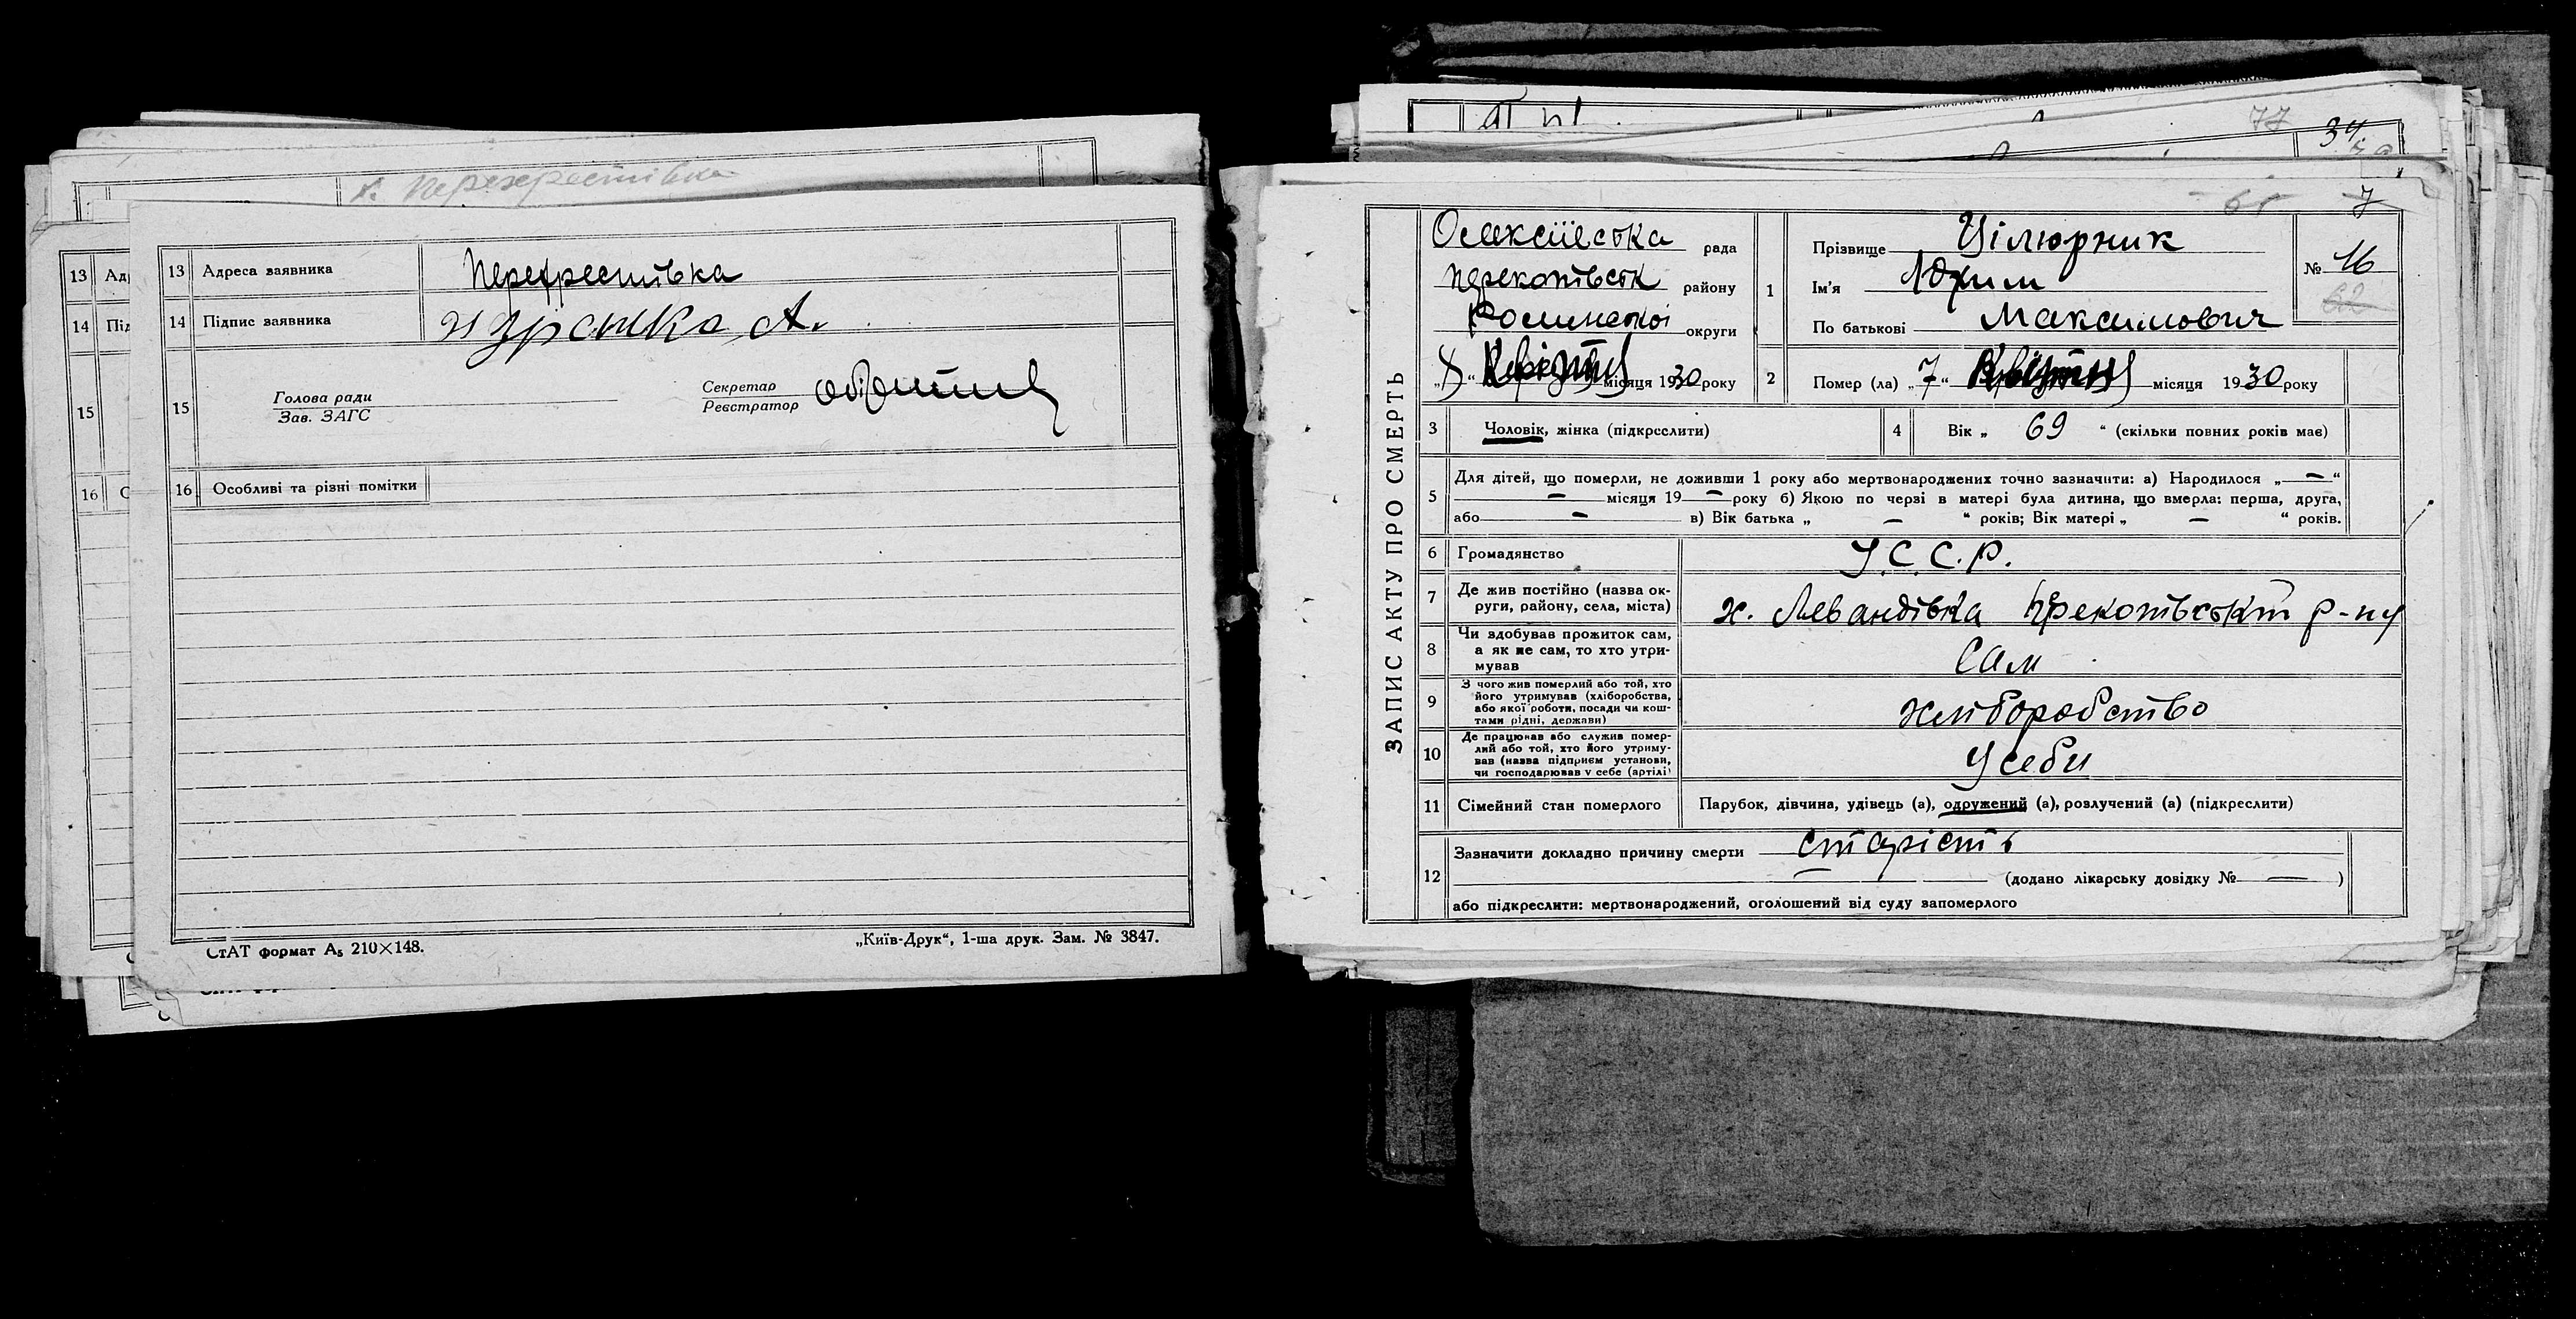 с. Перехрестівка
13 Ад
14 Під
15
16 С
13 Адреса заявника Перехрестівка
14 Підпис заявника
15 Голова ради
Зав. ЗАГС
Секретар
Реєстратор
16 Особливі та різні помітки
СтАТ формат А5 210×148.
„Київ-Друк“, 1-ша друк. Зам. № 3847.
77
34
65 7
ЗАПИС АКТУ ПРО СМЕРТЬ
Олексіївська рада
Перекопівськ району
Роменської округи
Квітня місяця 1930 року
1 Прізвище Цілюрник
Ім'я Юхим
По батькові Максимович
№ 16
62
2 Помер (ла) „7“ Квітня місяця 1930 року
3 Чоловік, жінка (підкреслити)
4 Вік „ 69 “ (скільки повних років має)
5 Для дітей, що померли, не доживши 1 року або мертвонароджених точно зазначити: а) Народилося „—“
— місяця 19 — року б) Якою по черзі в матері була дитина, що вмерла: перша, друга,
або — в) Вік батька „ — “ років; Вік матері „ — “ років.
6 Громадянство У.С.С.Р.
7 Де жив постійно (назва ок-
руги, району, села, міста)
х. Левандівка Перекопівськ р-ну
8 Чи здобував прожиток сам,
а як не сам, то хто утри-
мував
Сам
9 З чого жив померлий або той, хто
його утримував (хліборобства,
або якої роботи, посади чи кош-
тами рідні, держави)
хліборобство
10 Де працював або служив помер-
лий або той, хто його утриму-
вав (назва підприєм установи,
чи господарював у себе (артілі)
У себи
11 Сімейний стан померлого Парубок, дівчина, удівець (а), одружений (а), розлучений (а) (підкреслити)
12 Зазначити докладно причину смерти старість
— (додано лікарську довідку № — )
або підкреслити: мертвонароджений, оголошений від суду запомерлого